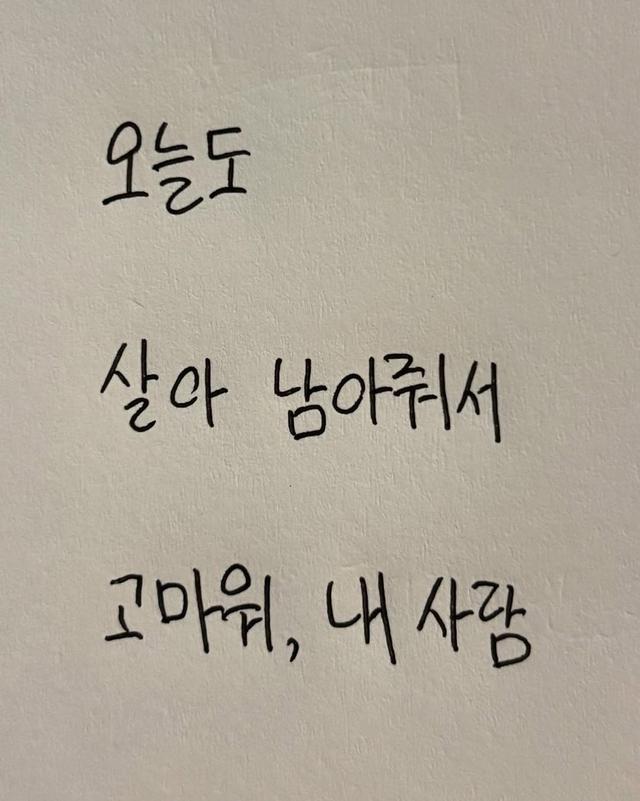 오늘도
살아 남아줘서
고마워, 내 사람